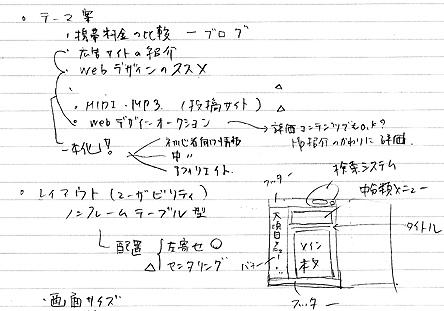 。テーマ案
・携帯料金の比較 ― ブログ
・広告サイトの紹介
・webデザインのススメ
・ △
・MIDI・MP3 (投稿サイト) △
・webデザインオークション → 評価コンテンツでもOK?
HP紹介のかわりに評価
一本化!! 初心者向け情報
中 〃
アフィリエイト
。レイアウト (ユーザビリティ)
ノンフレームテーブル型
配置 左寄せ ○
△ センタリング
ヘッター
検索システム
中分類メニュー
タイトル
大項目メニュー
メイン
本文
バナー
フッター
・画面サイズ